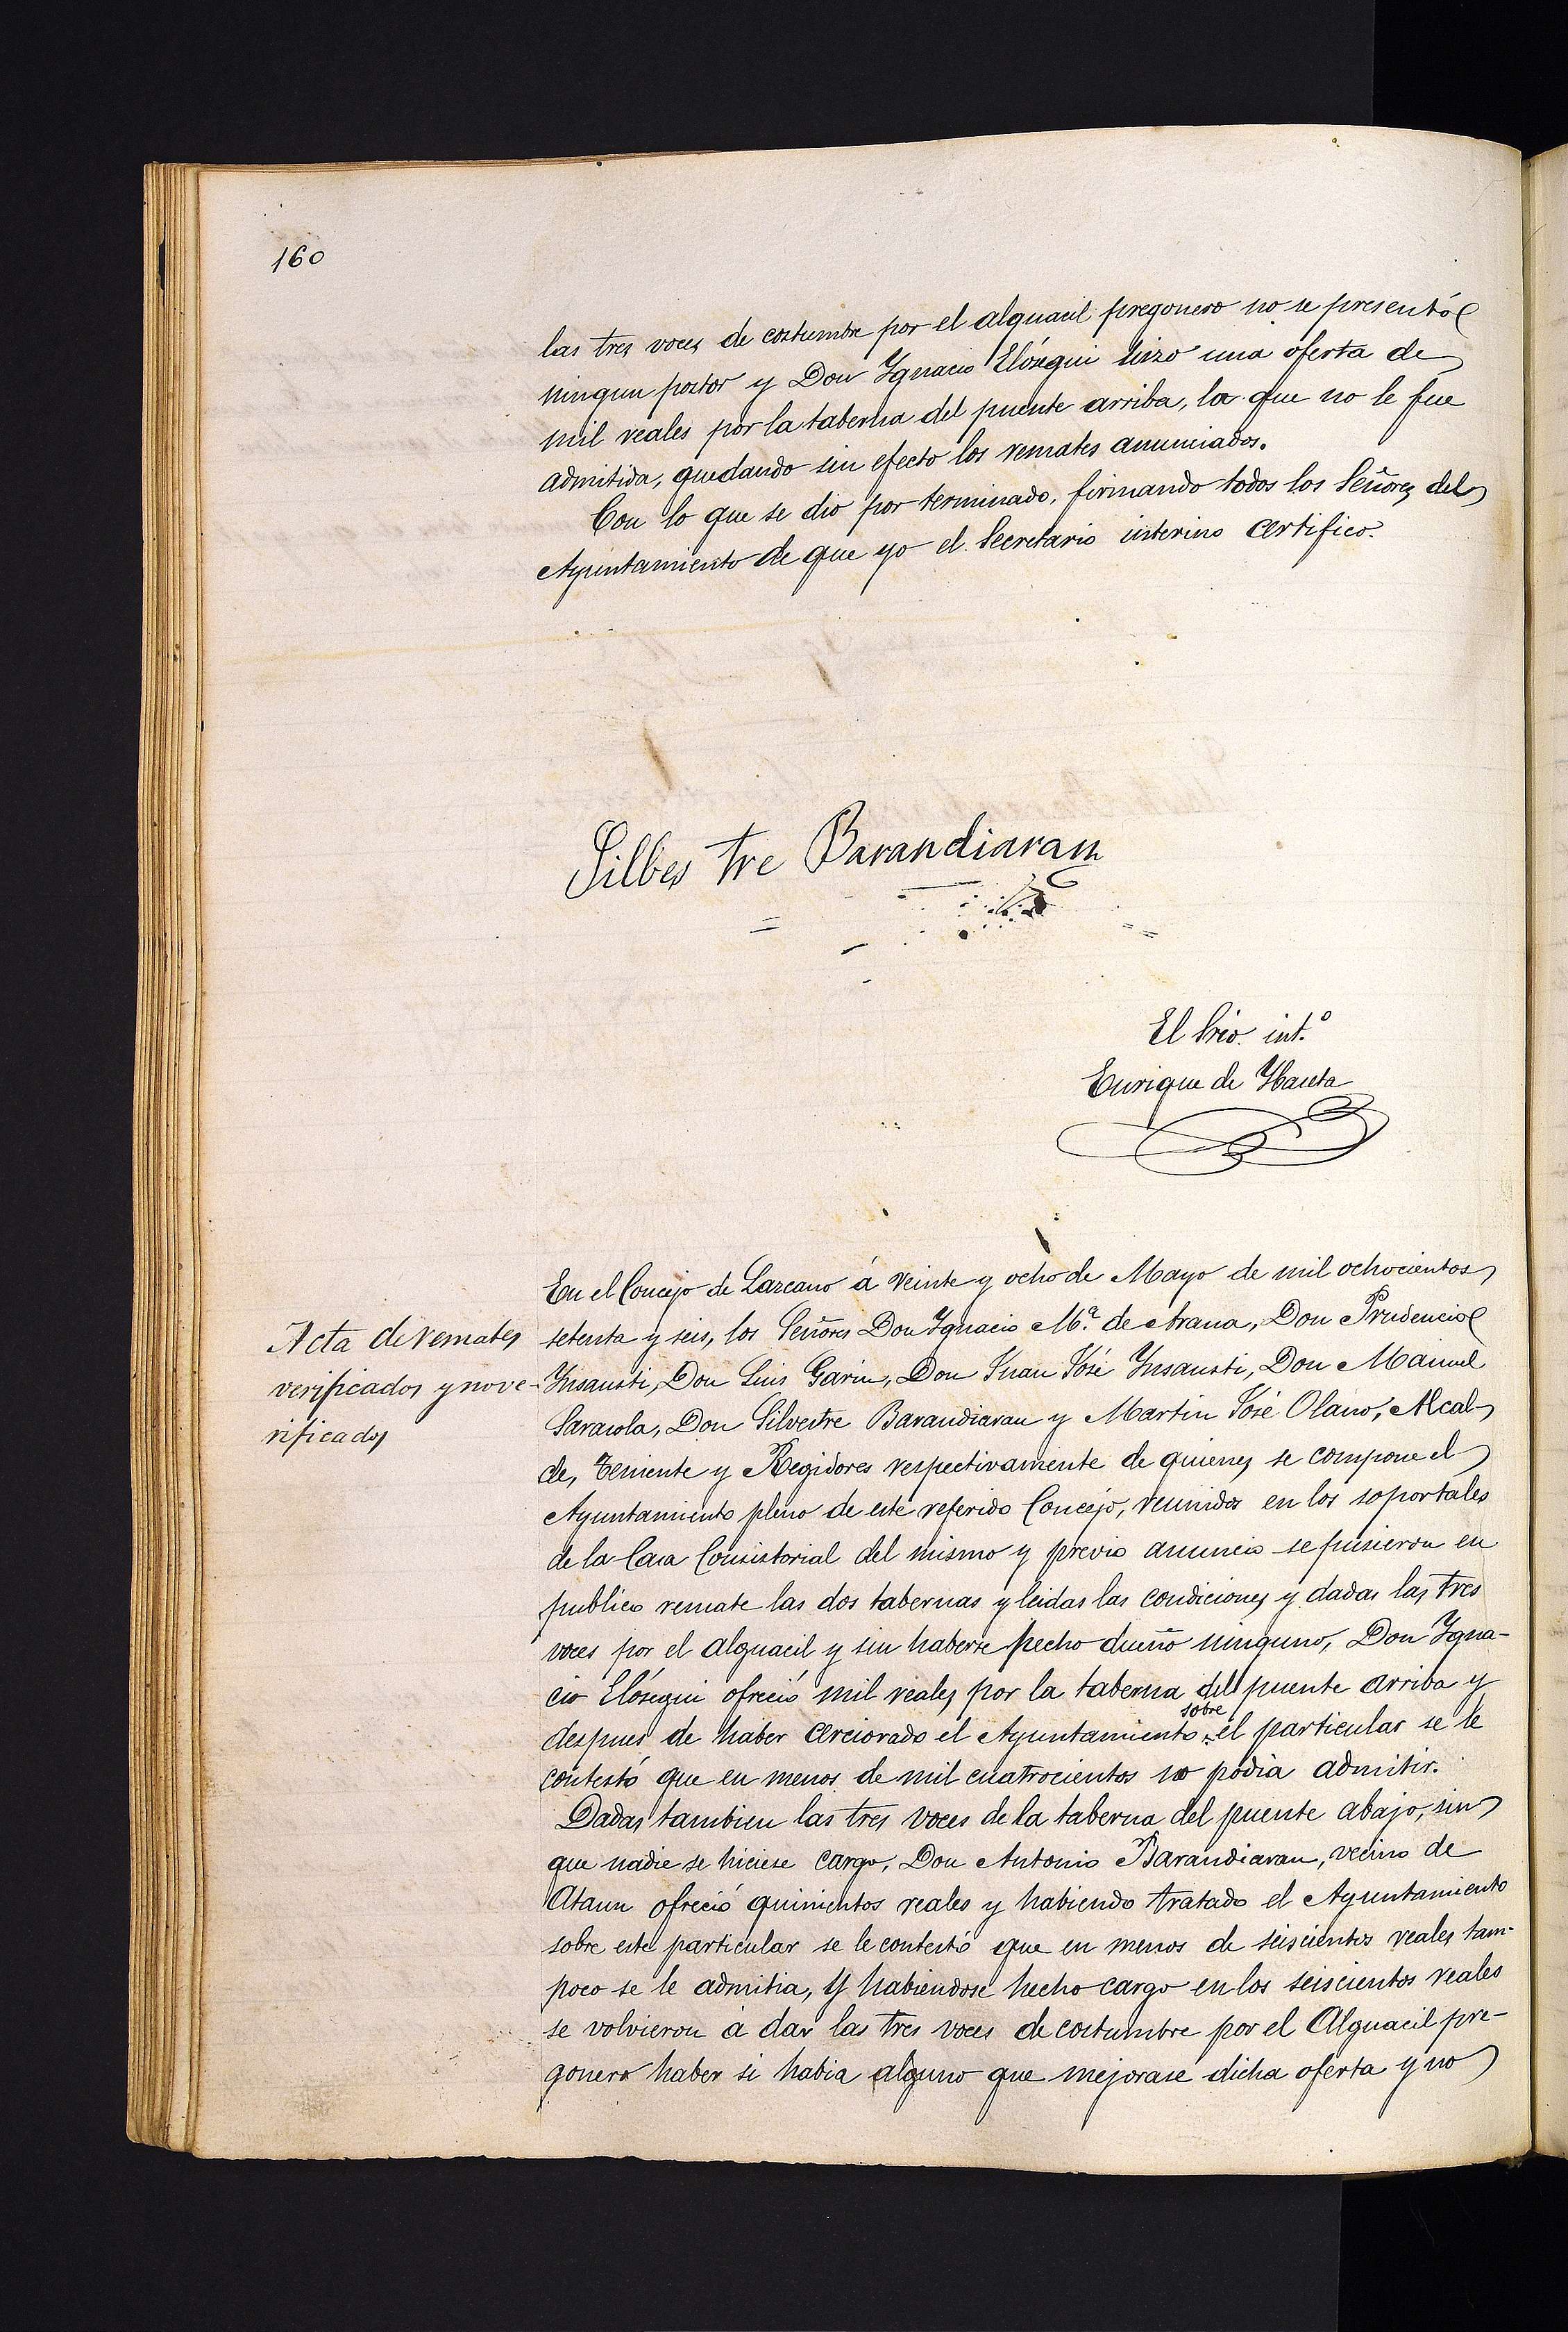 160
las tres voces de costumbre por el alguacil pregonero no se presentó
ningun postor y Don Ygnacio Elósegui hizo una oferta de
mil reales por la taberna del puente arriba, la que no le fue
admitida, quedando sin efecto los remates anunciados.
Con lo que se dio por terminado, firmando todos los Señores del
Ayuntamiento de que yo el Secretario interino certifico.
Silbes tre Barandiaran
El Srio. int.º
Enrique de
Acta de remates
verificados y no ve-
rificados
En el Concejo de Lazcano á veinte y ocho de Mayo de mil ochocientos
setenta y seis, los Señores Don Ygnacio M.ª de Arana, Don Prudencio
Ynsausti, Don Luis Garin, Don Juan José Ynsausti, Don Manuel
Sarasola, Don Silvestre Barandiaran y Martin José Olano, Alcal-
de, Teniente y Regidores respectivamente de quienes se compone el
Ayuntamiento pleno de este referido Concejo, reunidos en los soportales
de la Casa Consistorial del mismo y previo anuncio se pusieron en
publico remate las dos tabernas y leidas las condiciones y dadas las tres
voces por el alguacil y sin haberse hecho dueño ninguno, Don Ygna-
cio Elósegui ofreció mil reales por la taberna del puente arriba y
despues de haber cerciorado el Ayuntamiento sobre el particular se le
contestó que en menos de mil cuatrocientos no podia admitir.
Dadas tambien las tres voces de la taberna del puente abajo, sin
que nadie se hiciese cargo, Don Antonio Barandiaran, vecino de
Ataun ofreció quinientos reales y habiendo tratado el Ayuntamiento
sobre este particular se le contestó que en menos de seiscientos reales tam-
poco se le admitia, y habiendose hecho cargo en los seiscientos reales
se volvieron á dar las tres voces de costumbre por el Alguacil pre-
gonero haber si habia alguno que mejorase dicha oferta y no